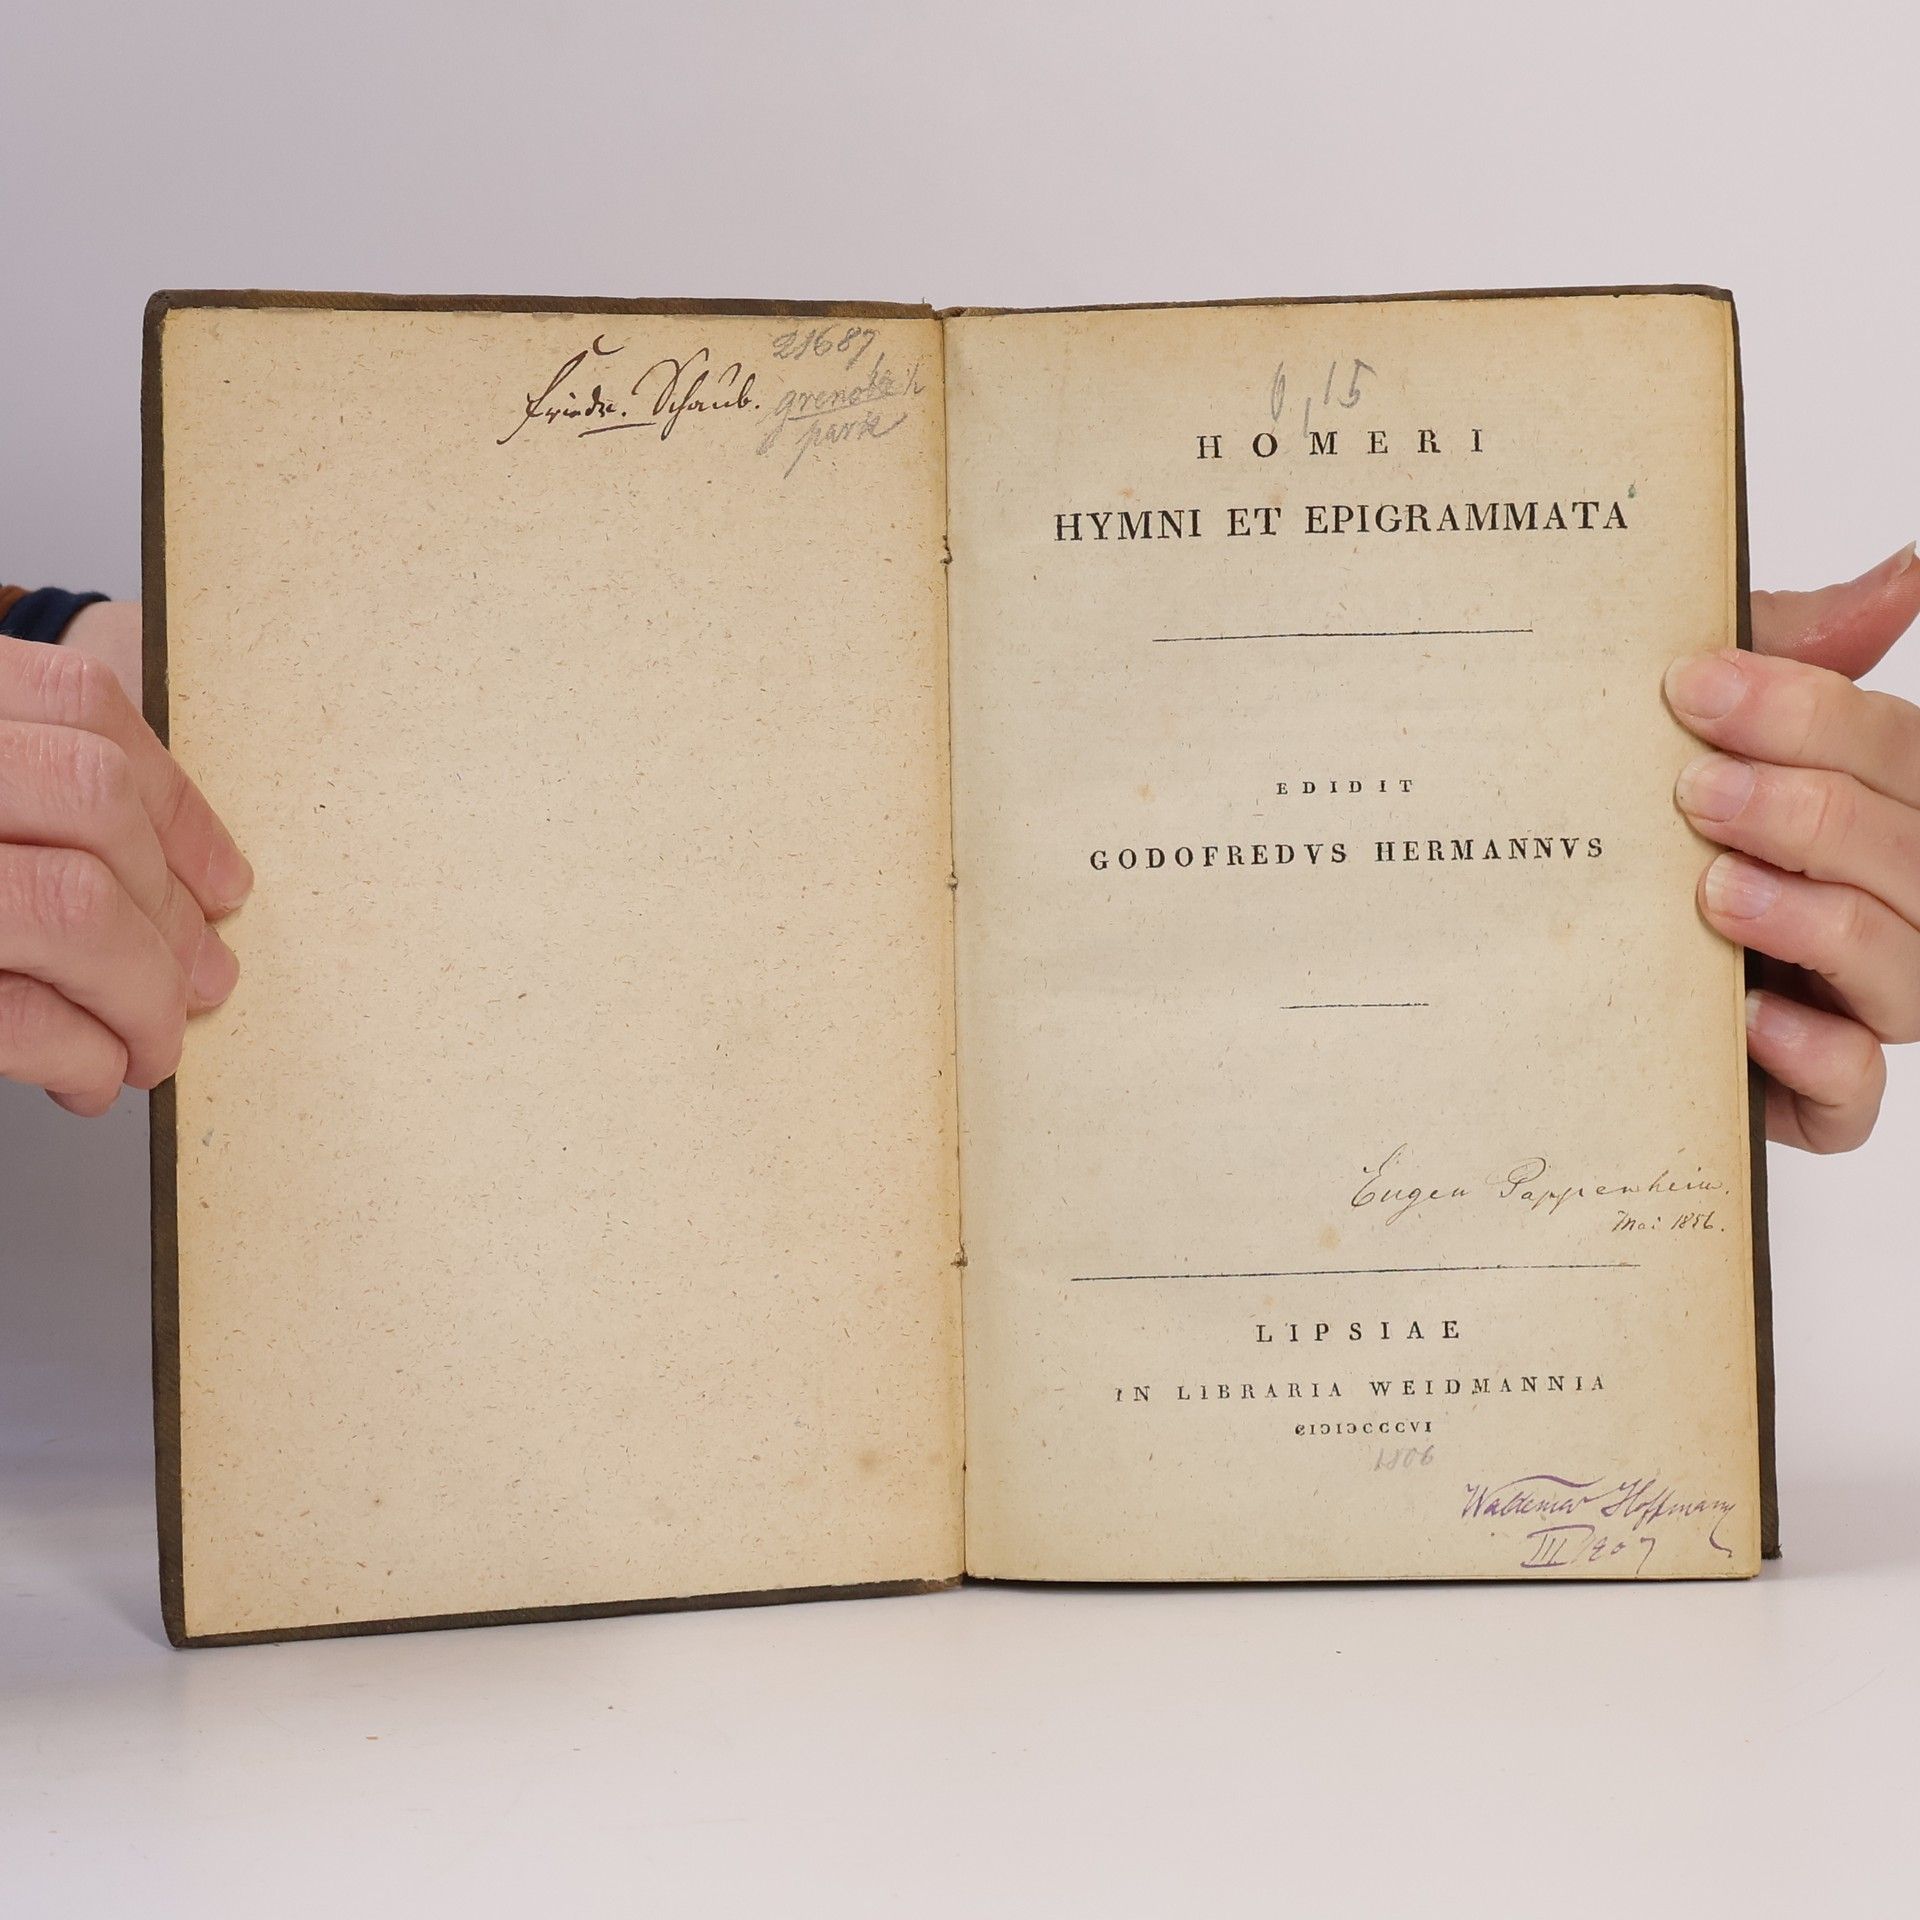 21687
Friedr. Schaub.
0,15
HOMERI
HYMNI ET EPIGRAMMATA
EDIDIT
GODOFREDVS HERMANNVS
Eugen Pappenheim.
Mai 1856.
LIPSIAE
IN LIBRARIA WEIDMANNIA
CIↃIↃCCCVI
1806
Waldemar Hoffmann
III 1907